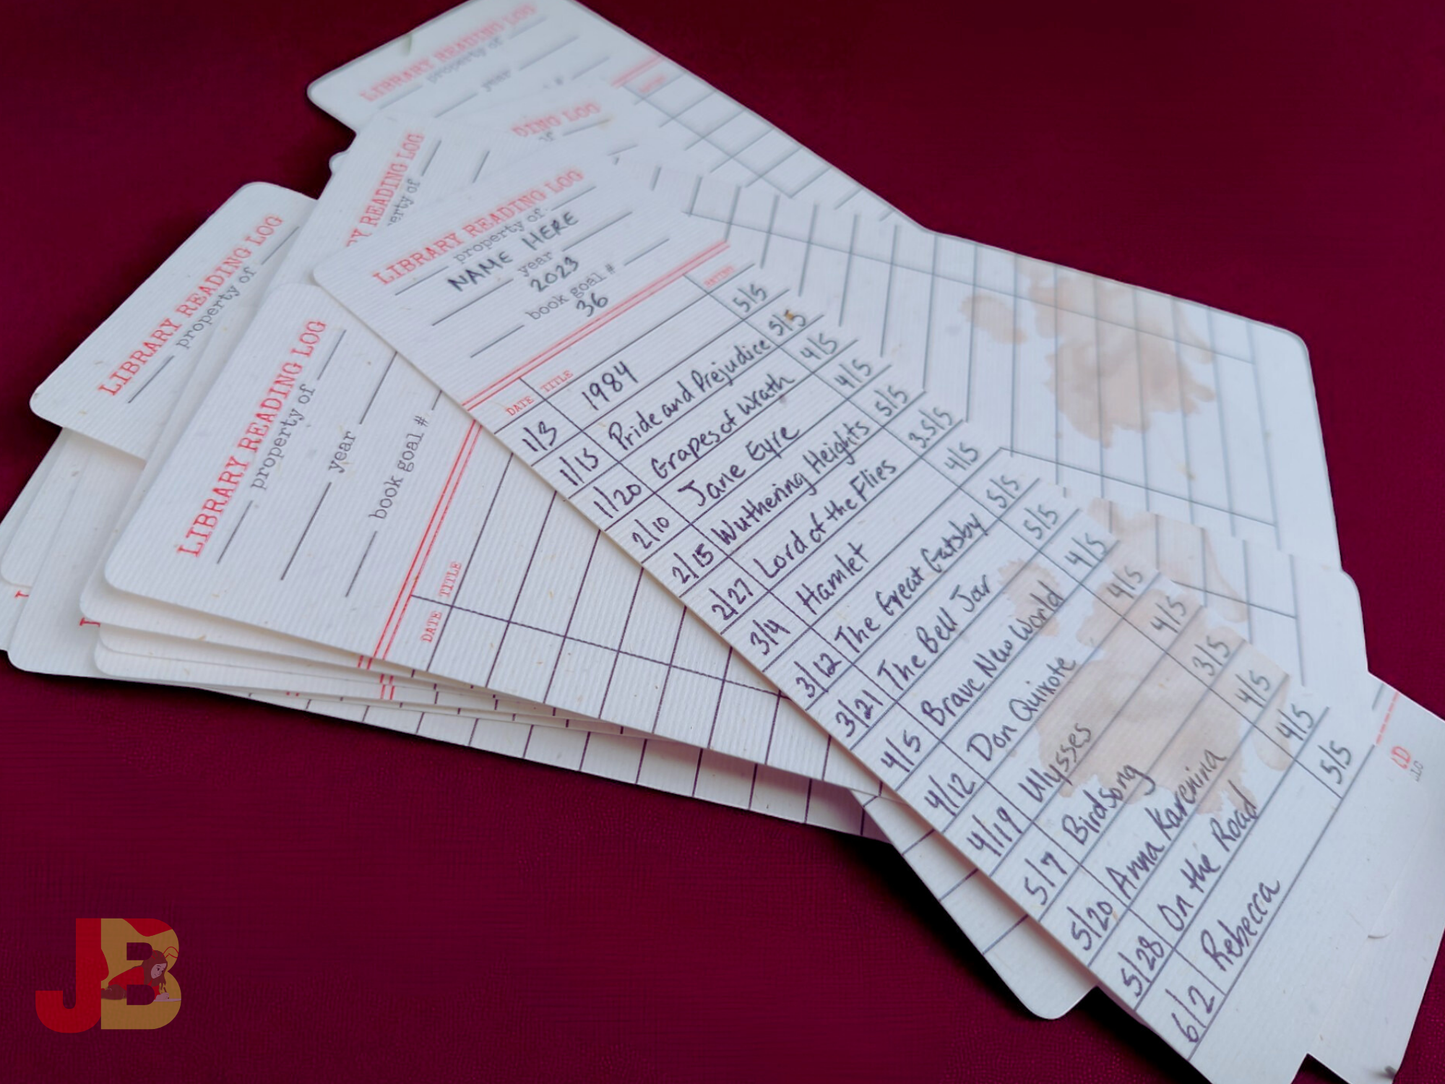 LIBRARY READING LOG
property of
year
LIBRARY READING LOG
property of
NAME HERE
year
2023
book goal #
36
DATE TITLE RATING
1/3 1984 5/5
1/15 Pride and Prejudice 5/5
1/20 Grapes of Wrath 4/5
2/10 Jane Eyre 4/5
2/15 Wuthering Heights 5/5
2/27 Lord of the Flies 3.5/5
3/4 Hamlet 4/5
3/12 The Great Gatsby 5/5
3/21 The Bell Jar 5/5
4/5 Brave New World 4/5
4/12 Don Quixote 4/5
4/19 Ulysses 4/5
5/7 Birdsong 3/5
5/20 Anna Karenina 4/5
5/28 On the Road 4/5
6/2 Rebecca 5/5
DING LOG
of
Y READING LOG
erty of
LIBRARY READING LOG
property of
LIBRARY READING LOG
property of
year
book goal #
DATE TITLE
JB